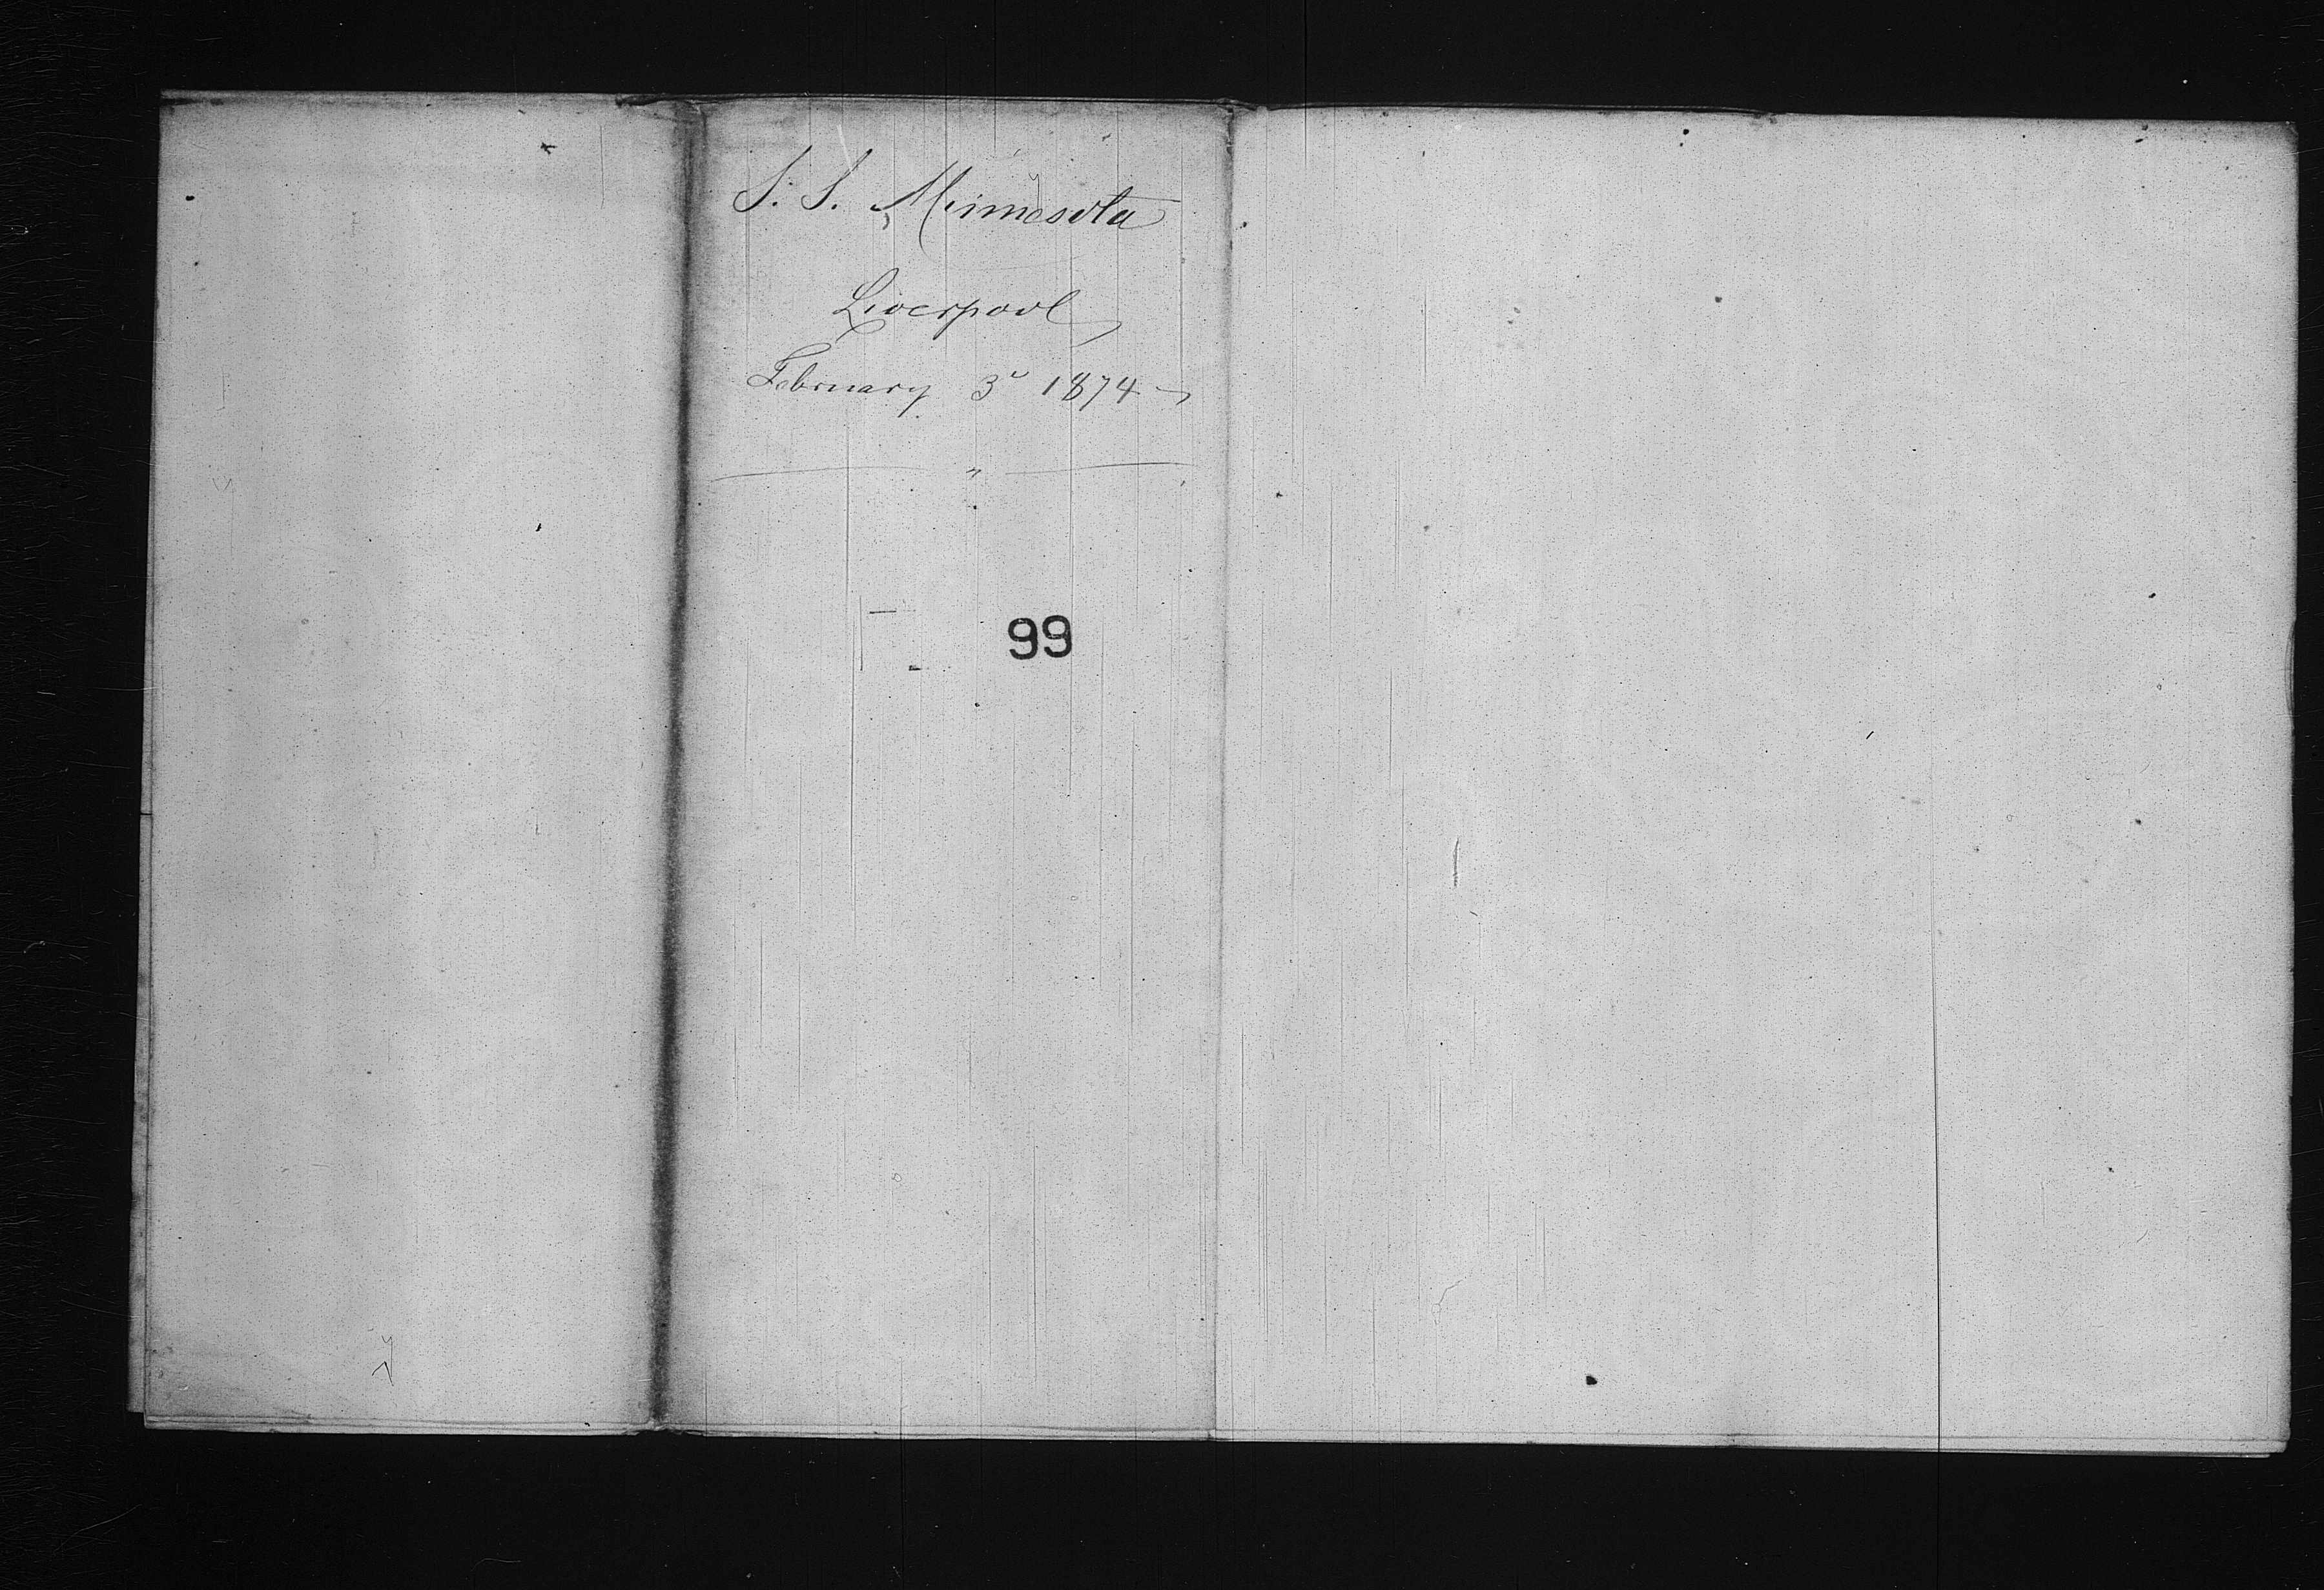 S. S. Minnesota
Liverpool
February 3d 1874
99